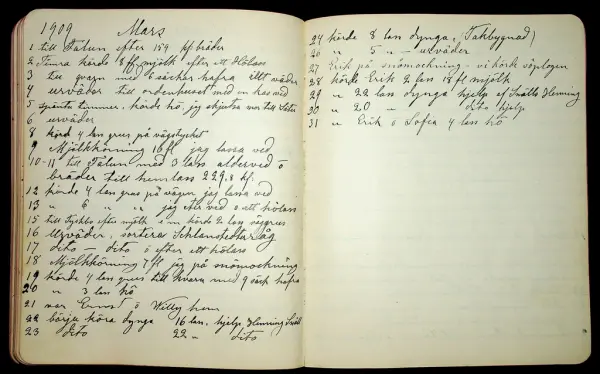 1909 Mars
1 till Falun efter 159 kbf bräder
2 Timra körde 8 ff mjölk efter ett Hölass
3 till qvarn med 6 säckar hafra illt väder
4 urväder till ordenhuset med en kas ved
5 timmer, körde hö, jag skjuta mor till Säter
6 urväder
8 körd 4 lan grus på vägstycket
9 Mjölkkörning 16 ff jag lassa ved
10-11 till Falun med 3 lass alderved o
bräder till hemlan 229,8 kf.
12 körde 4 lan grus på vägen jag lassa ved
13 " 6 " " jag efter ved o ett hölass
15 till efter mjölk i em körde 2 lan
16 Urväder, sortera råg
17 dito — dito o efter ett hölass
18 Mjölkkörning 7 ff jag på snömockning
19 körde 4 lan grus till kvarn med 9 säck hafra
20 " 3 lan hö
21 var Ernst o Willy hem
22 börja köra dynga 16 lan, hjelp Henning Snäll
23 dito 22 " dito
24 körde 8 lan dynga, (Takbygnad)
26 " 5 " — urväder
27 Erik på snömockning - vi körk söplogen
28 körde Erik 2 lan 18 ft mjölk
29 " 22 lan dynga hjelp af Snälls Henning
30 " 20 " dito hjelp
31 " Erik o Sofia 4 lan hö